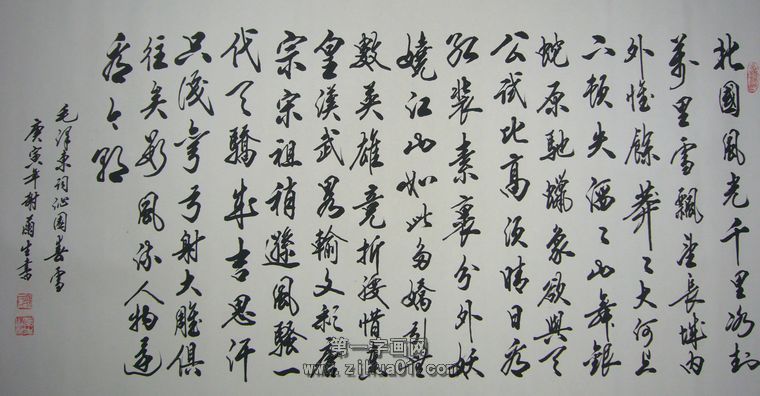 北國風光千里冰封
萬里雪飄望長城內
外惟餘莽〻大河上
下頓失滔〻山舞銀
蛇原馳蠟象欲與天
公試比高須晴日看
紅裝素裹分外妖
嬈江山如此多嬌引無
數英雄竞折腰惜秦
皇漢武畧輸文彩唐
宗宋祖稍遜風騷一
代天驕成吉思汗
只識彎弓射大雕俱
往矣數風流人物還
看今朝
毛澤東詞沁園春雪
庚寅年謝生書
第一字画网
www.zihua01.com